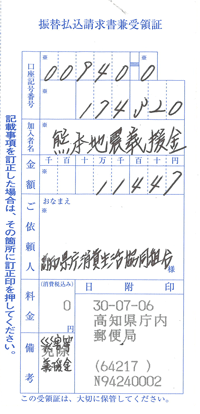 振替払込請求書兼受領証
口座記号番号
00940 0
174320
加入者名
熊本地震義援金
金額
千 百 十 万 千 百 十 円
11447
ご依頼人
おなまえ
高知県庁消費生活協同組合
様
料金
(消費税込み)
0
円
日附印
30-07-06
高知県庁内
郵便局
(64217)
N94240002
備考
災害
免除
義援金
記載事項を訂正した場合は、その箇所に訂正印を押してください。
この受領証は、大切に保管してください。